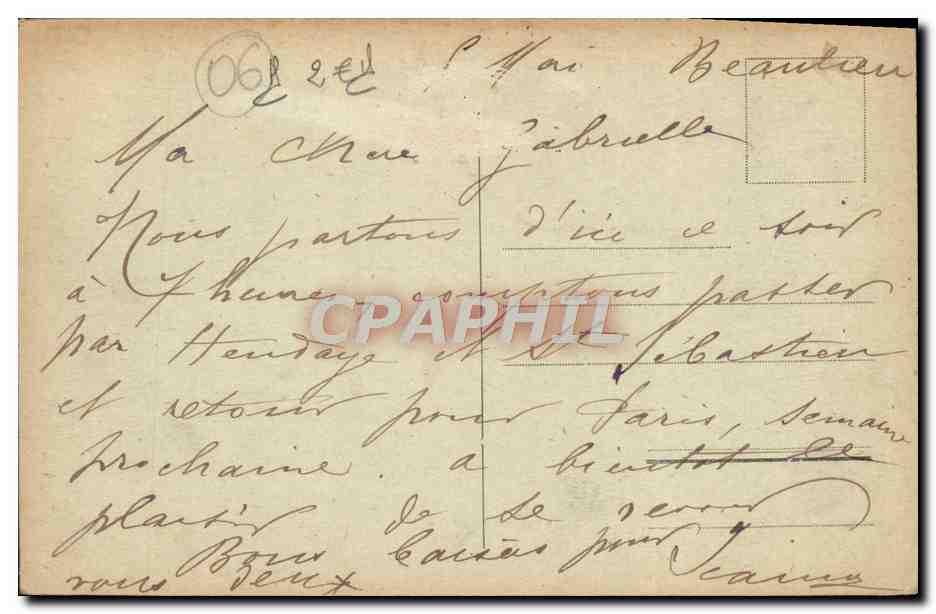 06 2€
Mai Beaulieu
Ma chere Gabrielle
Nous partons d'ici ce soir
à 7 heure, comptons passer
par Hendaye et St Sébastien
et retour pour Paris, semaine
prochaine. a bientot le
plaisir de se revoir
Bons baisers pour
vous deux
CPAPHIL